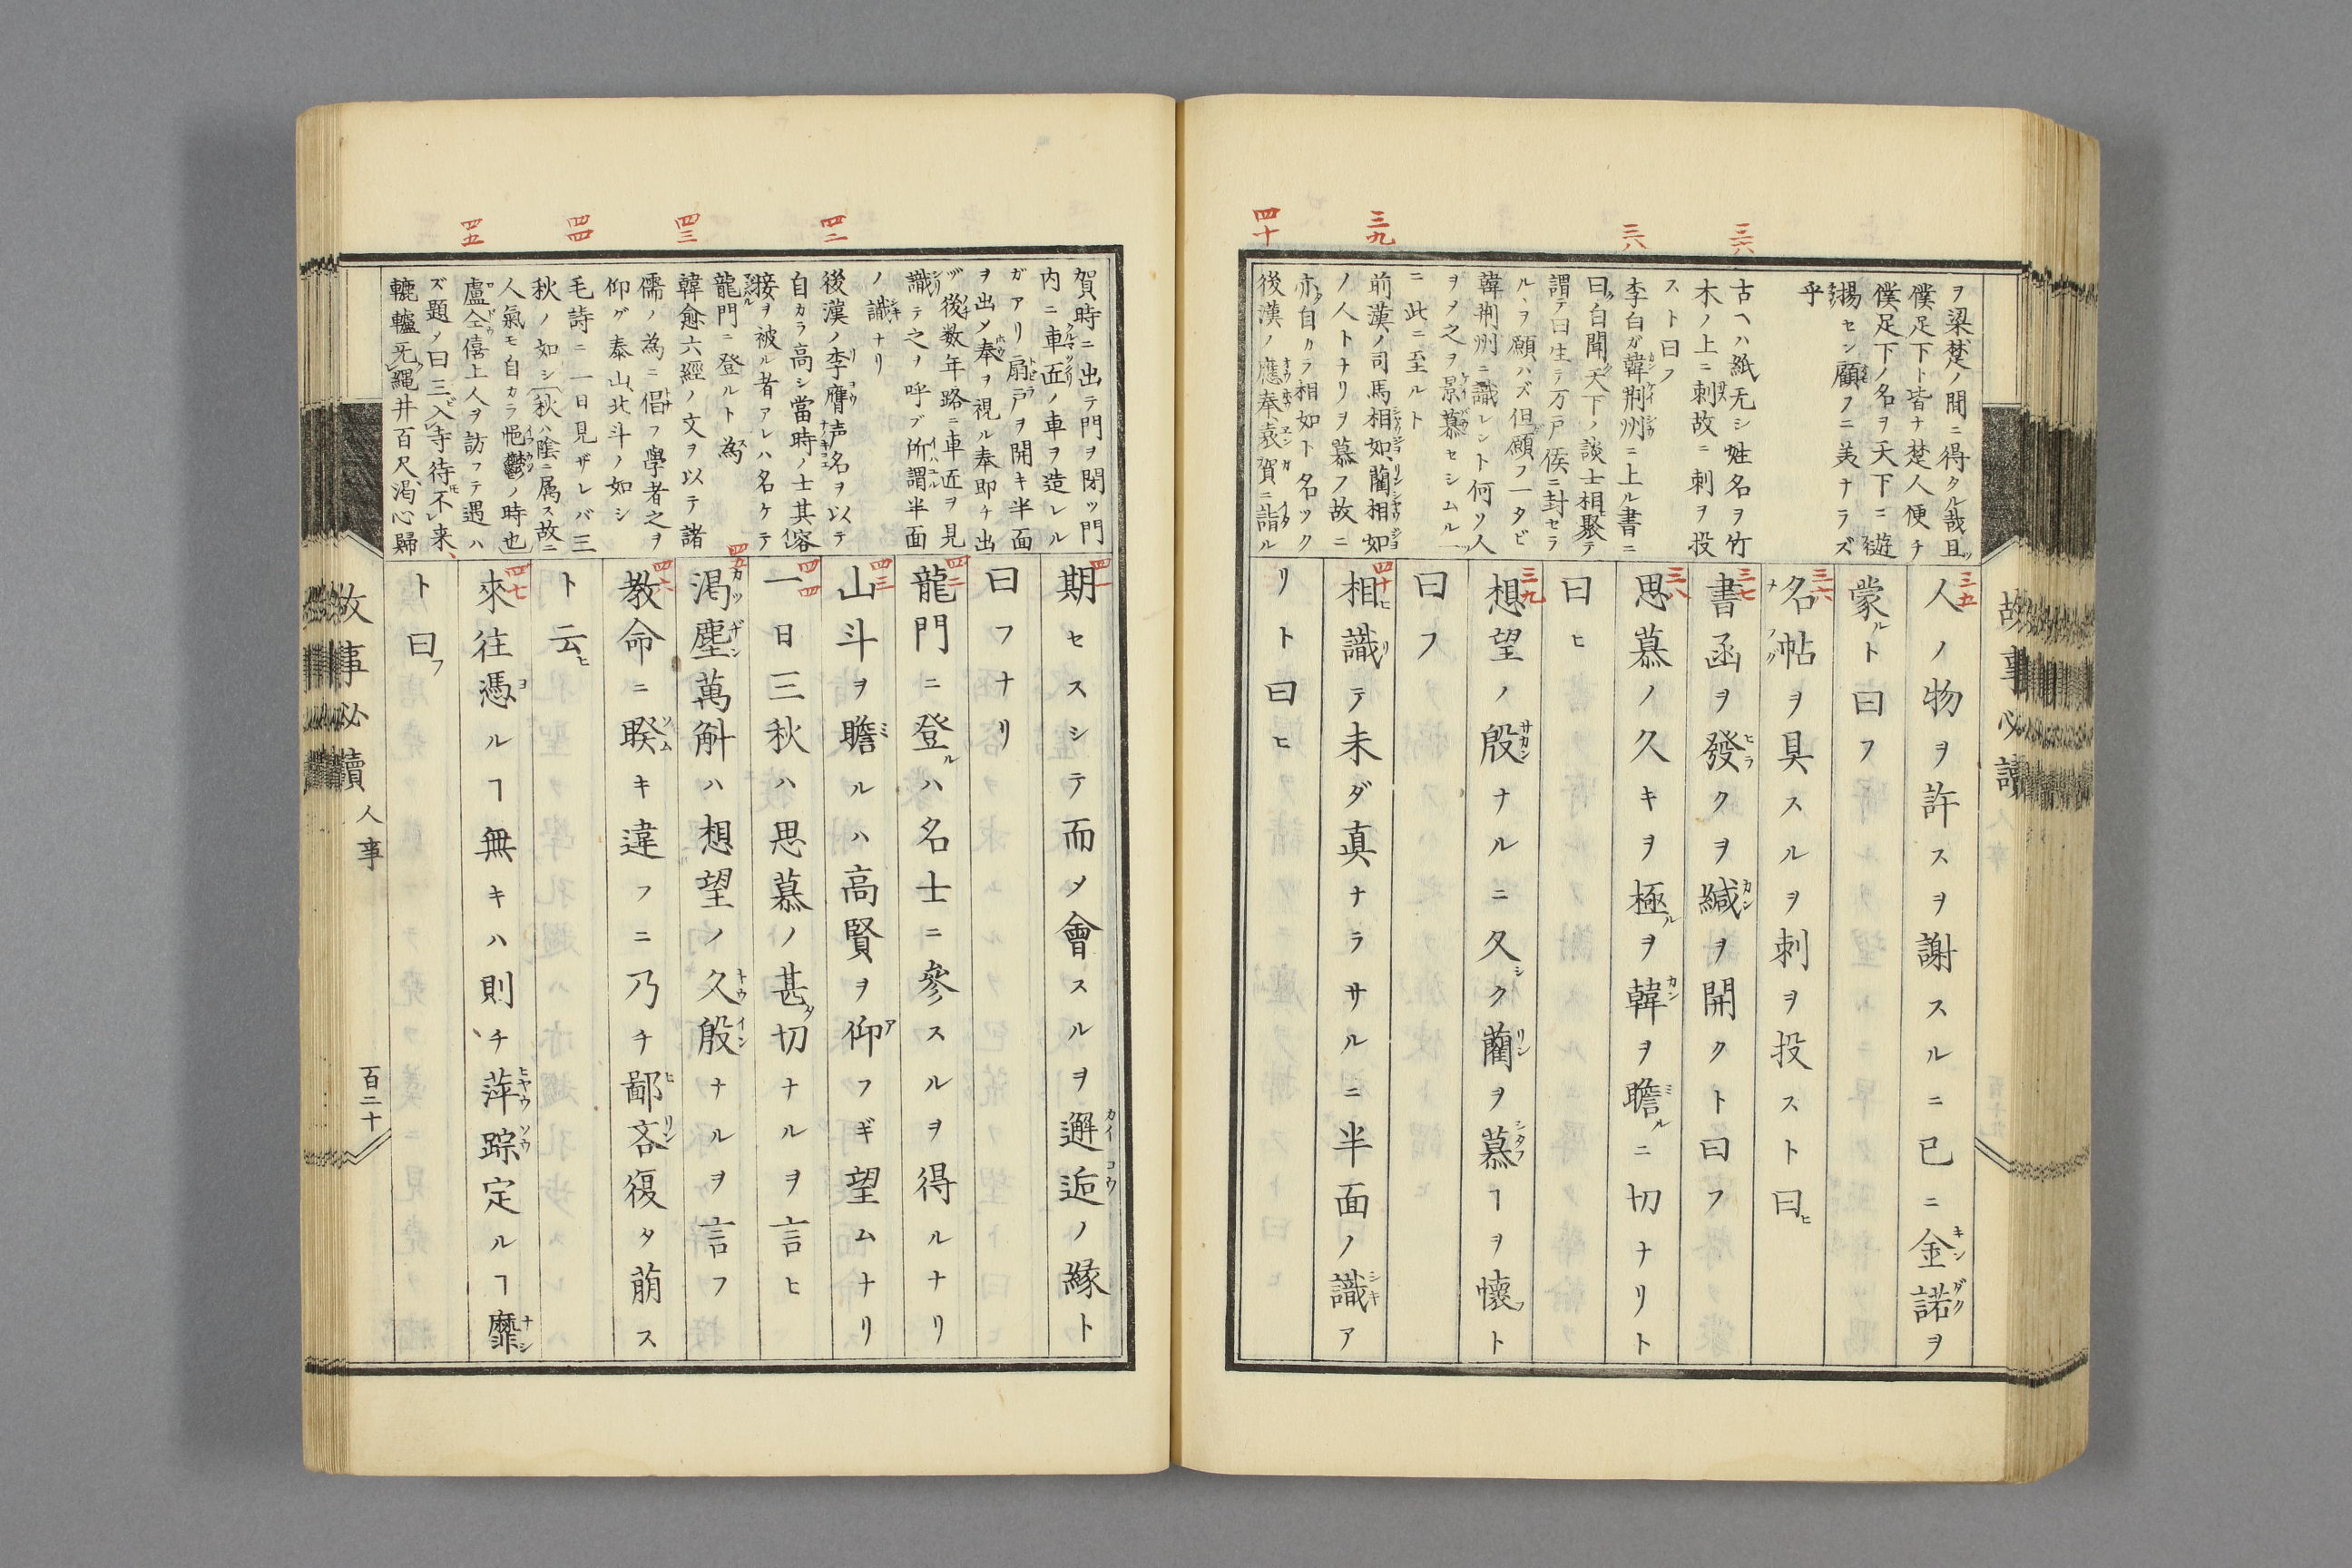 三六
三八
三九
四十
ヲ梁楚ノ間ニ得タル哉且ツ
僕足下ト皆ナ楚人便チ
僕足下ノ名ヲ天下ニ遊
揚セン顧フニ美ナラズ
乎
古ヘハ紙无シ姓名ヲ竹
木ノ上ニ刺故ニ刺ヲ投
スト曰フ
李白ガ韓荊州ニ上ル書ニ
曰ク白聞天下ノ談士相聚テ
謂テ曰生テ万戸侯ニ封セラ
ルヽヲ願ハズ但願フ一タビ
韓荊州ニ識レント何ソ人
ヲメ之ヲ景慕セシムルヿ
ニ此ニ至ルト
前漢ノ司馬相如藺相如
ノ人トナリヲ慕フ故ニ
亦自カラ相如ト名ツク
後漢ノ應奉袁賀ニ詣ル
三五
人ノ物ヲ許スヲ謝スルニ已ニ金諾ヲ
蒙ルト曰フ
三六
名帖ヲ具スルヲ刺ヲ投スト曰ヒ
三七
書函ヲ發クヲ緘ヲ開クト曰フ
三八
思慕ノ久キヲ極ルヲ韓ヲ瞻ルニ切ナリト
曰ヒ
三九
想望ノ殷ナルニ久シク藺ヲ慕フヿヲ懐フト
曰フ
四十
相識テ未ダ真ナラサルニ半面ノ識ア
リト曰ヒ
故事必讀
四二
四三
四四
四五
賀時ニ出テ門ヲ閉ツ門
内ニ車匠ノ車ヲ造レル
ガアリ扇戸ヲ開キ半面
ヲ出メ奉ヲ視ル奉即チ出
ヅ後数年路ニ車匠ヲ見
識テ之ノ呼ブ所謂半面
ノ識ナリ
後漢ノ李膺声名ヲ以テ
自カラ高シ當時ノ士其容
接ヲ被ル者アレハ名ケテ
龍門ニ登ルト為
韓愈六經ノ文ヲ以テ諸
儒ノ為ニ倡フ學者之ヲ
仰グ泰山北斗ノ如シ
毛詩ニ一日見ザレバ三
秋ノ如シ秋ハ陰ニ属ス故ニ
人氣モ自カラ悒鬱ノ時也
盧仝僖上人ヲ訪フテ遇ハ
ズ題メ曰三入寺待不来
轆轤无縄井百尺渇心歸
四一
期セスシテ而メ會スルヲ邂逅ノ緣ト
曰フナリ
四二
龍門ニ登ルハ名士ニ參スルヲ得ルナリ
四三
山斗ヲ瞻ルハ高賢ヲ仰フギ望ムナリ
四四
一日三秋ハ思慕ノ甚タ切ナルヲ言ヒ
四五
渇塵萬斛ハ想望ノ久殷ナルヲ言フ
四六
教命ニ睽キ違フニ乃チ鄙吝復タ萠ス
ト云ヒ
四七
來往憑ルヿ無キハ則チ萍踪定ルヿ靡シ
ト曰フ
故事必讀
人事
百二十